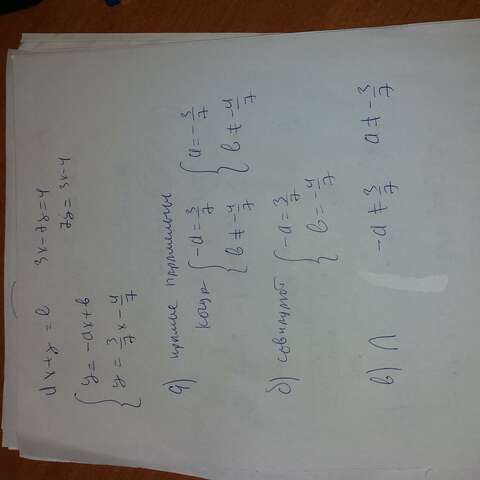 ax+y=b 3x-7y=4
7y=3x-4
{ y=-ax+b
{ y=3/7x-4/7
а) прямые параллельны
когда { -a=3/7 { a=-3/7
{ b≠-4/7 { b≠-4/7
б) совпадают { -a=3/7
{ b=-4/7
в) ∩ -a≠3/7 a≠-3/7